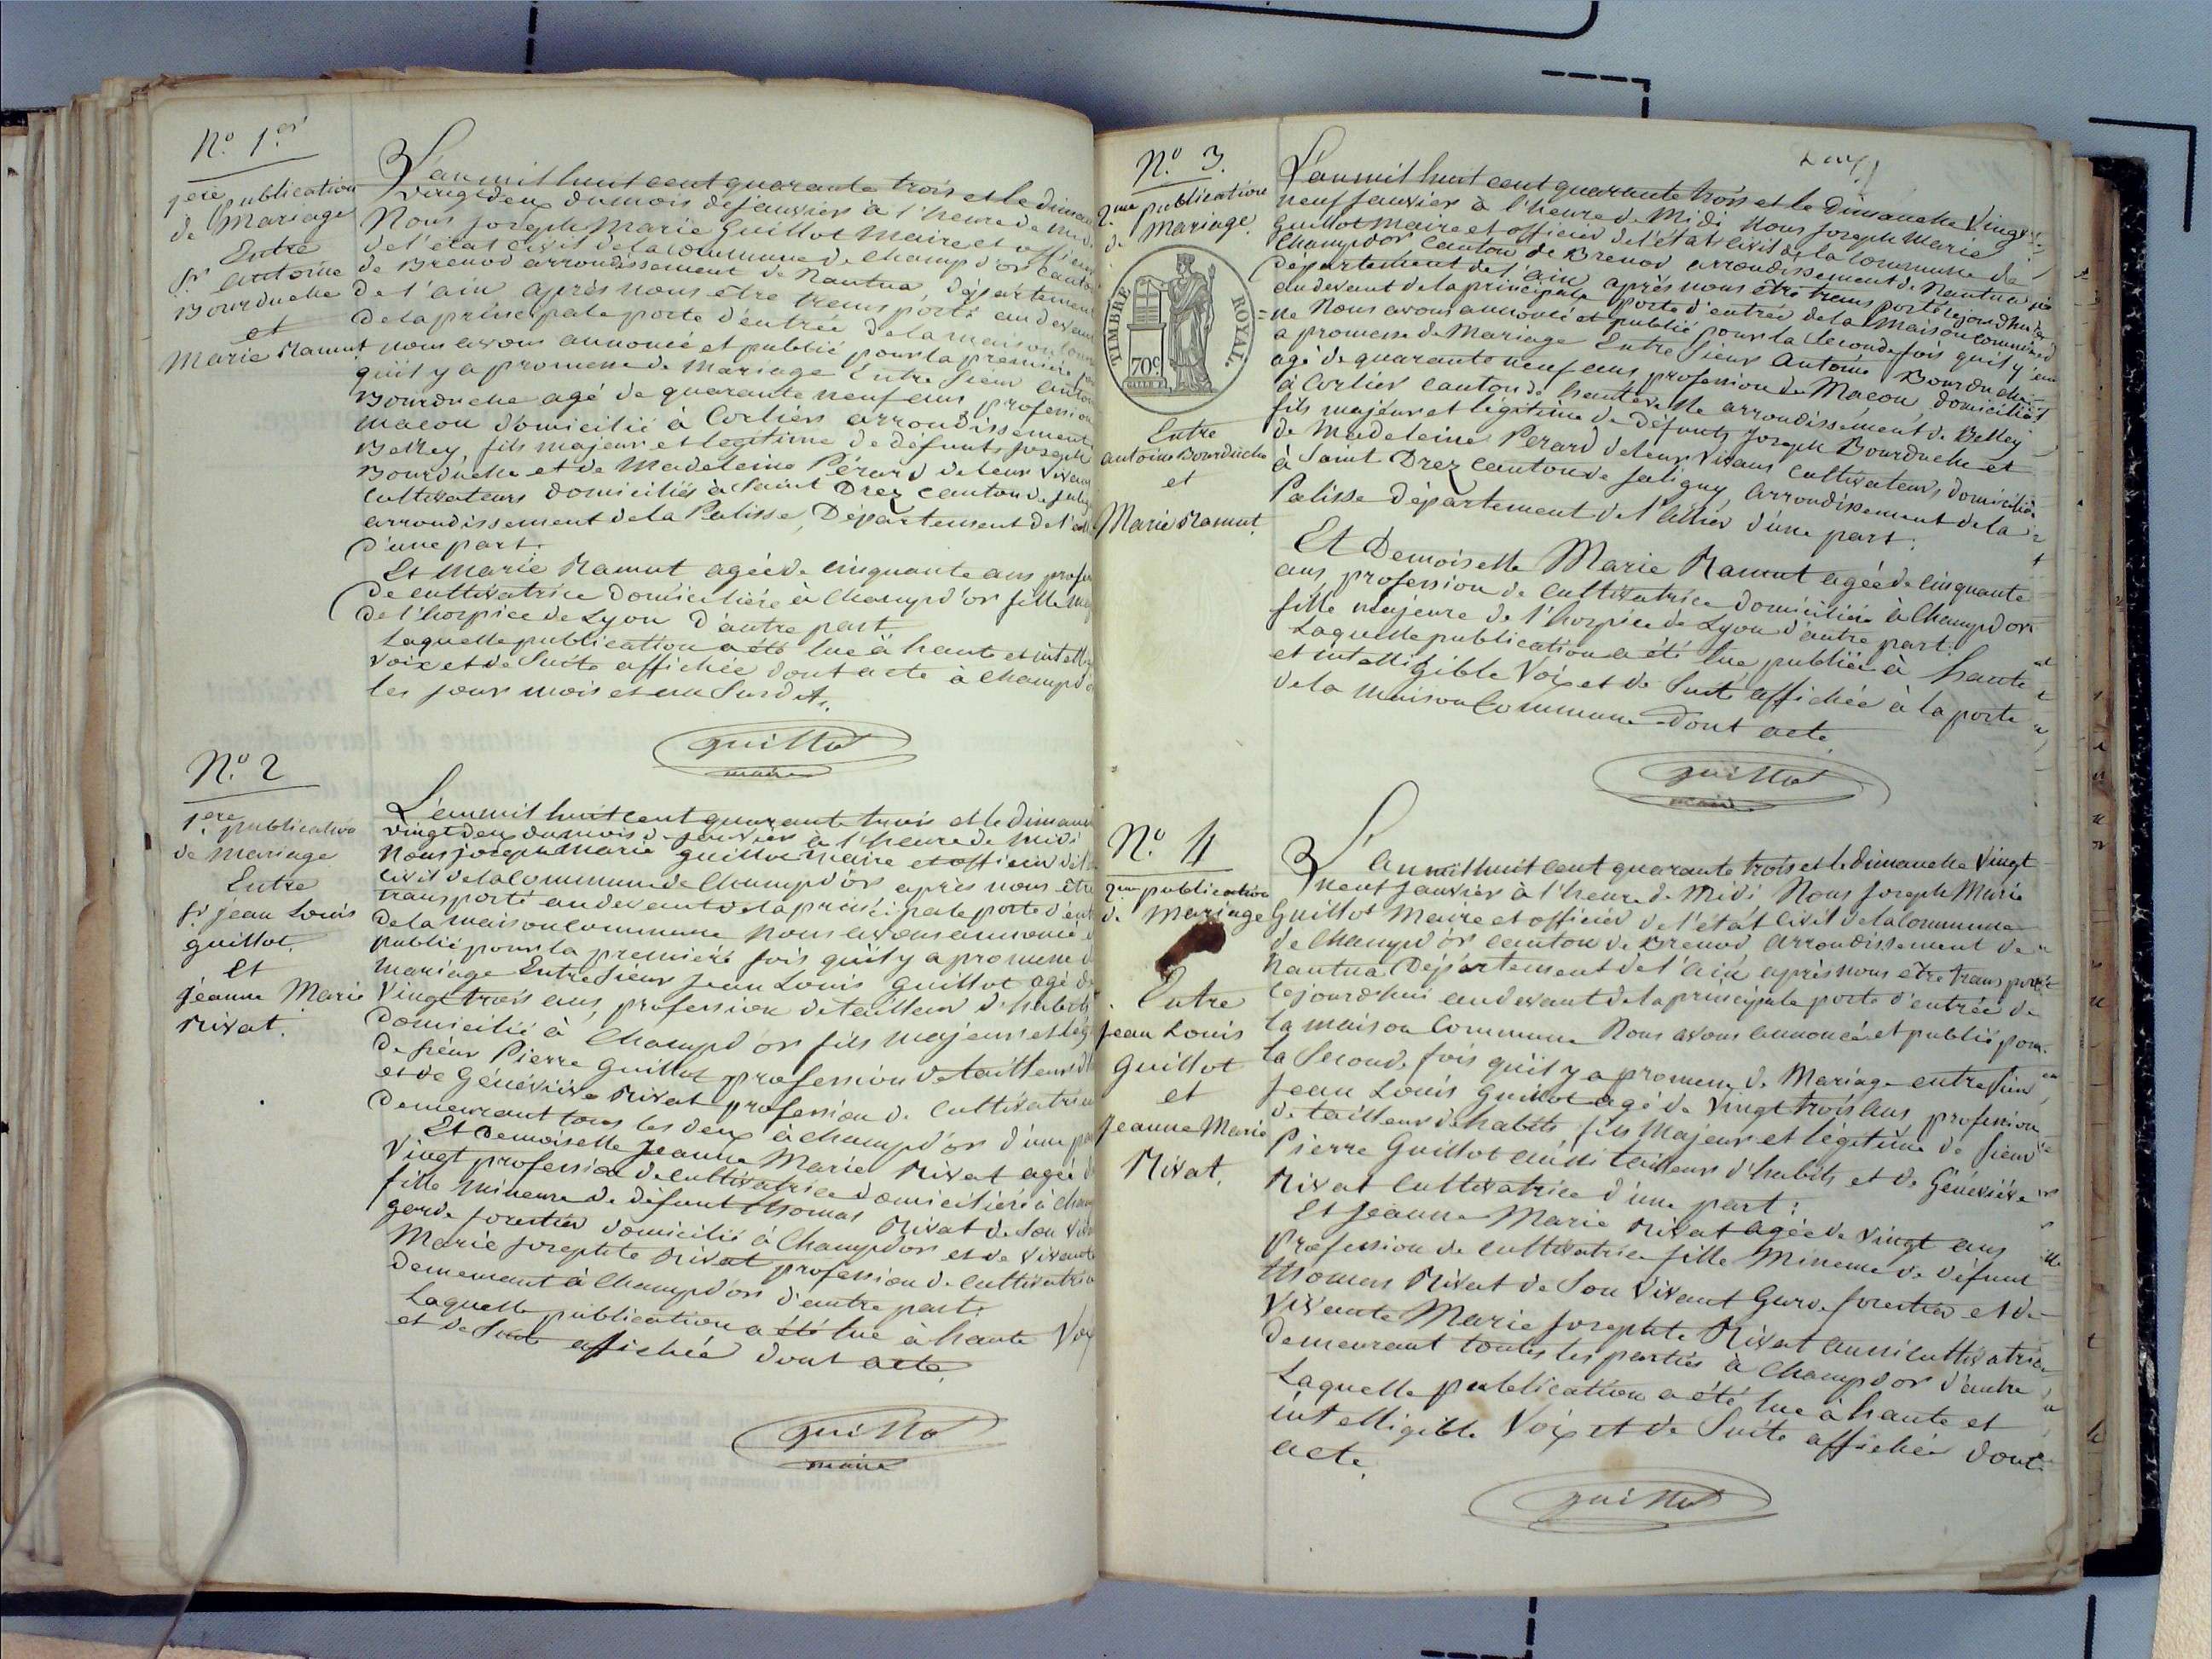 N.o 1.er
1ere publication
de Mariage
Entre
Sr antoine
Bourduche
et
Marie Ramut
L'an mil huit cent quarante trois et le diman
Vingt deux du mois de janvier à l'heure de midi
Nous joseph Marie Guillot Maire et officier
de l'état civil de la commune de Champ d'or canton
de Brenod arrondissement de Nantua, département
de l'ain après nous être transporté au devant
de la principale porte d'entrée de la maison com
nous avons annoncé et publié pour la première fois
qu'il y a promesse de Mariage Entre Sieur Antoi
Bourduche agé de quarante neuf ans profession
macon domicilié à Corlier arrondissement
Belley, fils majeur et legitime de défunts joseph
Bourduche et de Madeleine Pérard de leur vivant
Cultivateurs domiciliés à Saint Drez canton de Jali
arrondissement de la Palisse, Département de l'al
d'une part.
Et Marie Ramut agée de cinquante ans profes
de cultivatrice domicilière à Champ d'or fille maj
de l'hospice de Lyon d'autre part
Laquelle publication a été lue à haute et intelli
voix et de Suite affichée dont acte à Champ d'o
les jour mois et an Susdit.
Guillot
maire
N.o 2
1.ere publication
de Mariage
Entre
Sr jean Louis
guillot.
et
jeanne Marie
Rivat.
L'an mil huit cent quarante trois et le diman
vingt deux du mois de janvier à l'heure de midi
Nous joseph Marie guillot Maire et officier de l'
civil de la Commune de Champ d'or après nous être
transporté au devant de la principale porte d'ent
de la maison Commune Nous avons annoncé
publié pour la première fois qu'il y a promesse d
mariage Entre Sieur Jean Louis Guillot agé de
Vingt trois ans, profession de tailleur d'habits
domicilié à Champ d'or fils majeur et lég
de sieur Pierre Guillot profession de tailleur d'h
et de Généviève Rivat profession de Cultivatrice
demeurant tous les deux à Champ d'or d'une pa
Et Demoiselle Jeanne Marie Rivat agée d
Vingt profession de cultivatrice domicilière à Cham
fille mineure de défunt thomas Rivat de Son viv
garde forestier domicilié à Champ d'or et de vivante
Marie josephte Rivat profession de cultivatrice
demeurant à Champ d'or d'autre part.
Laquelle publication a été lue à haute Voix
et de Suite affichée dont acte.
Guillot
maire
N.o 3.
2.me publication
de Mariage.
TIMBRE ROYAL.
70c.
Entre
antoine Bourduche
et
Marie Ramut.
L'an mil huit cent quarante trois et le Dimanche Vingt
neuf Janvier à l'heure de Midi Nous joseph Marie
Guillot Maire et officier de l'état civil de la Commune de
Champdor Canton de Brenod arrondissement de Nantua
Département de l'ain, après nous être transporté cejourd'hui
au devant de la principale porte d'entrée de la Maison commu
ne Nous avons annoncé et publié pour la Seconde fois qu'il y
a promesse de Mariage Entre Sieur Antoine Bourduche
agé de quarante neuf ans profession de Maçon domicilié
à Corlier canton de hauteville arrondissement de Belley
fils majeur et légitime de Défunts joseph Bourduche et
de Madeleine Perard de leur vivant Cultivateurs domiciliés
à Saint Drez canton de Jaligny, arrondissement de la
Palisse département de l'allier d'une part.
Et Demoiselle Marie Ramut agée de cinquante
ans, profession de cultivatrice domicilière à Champ d'or
fille majeure de l'hospice de Lyon d'autre part.
Laquelle publication a été lue publiée à haute
et intelligible Voix et de Suite affichée à la porte
de la Maison Commune dont acte.
Guillot
maire
N.o 4
2.me publication
de Mariage
Entre
Jean Louis
Guillot
et
Jeanne Marie
Rivat.
L'an mil huit cent quarante trois et le dimanche Vingt
neuf Janvier à l'heure de Midi Nous Joseph Marie
Guillot Maire et officier de l'état civil de la Commune
de Champ d'or canton de Brenod arrondissement de
Nantua Département de l'ain après nous être transporté
cejourd'hui au devant de la principale porte d'entrée de
la maison Commune Nous avons annoncé et publié pour
la Seconde fois qu'il y a promesse de Mariage entre Sieur
Jean Louis Guillot agé de Vingt trois ans profession
de tailleur d'habits fils Majeur et légitime de Sieur
Pierre Guillot aussi tailleur d'habits et de Généviève
Rivat Cultivatrice d'une part:
Et Jeanne Marie Rivat agée de Vingt ans
Profession de cultivatrice fille Mineure de défunt
thomas Rivat de Son Vivant Garde forestier et de
Vivante Marie Josephte Rivat aussi cultivatrice
demeurant toutes les parties à Champ d'or d'autre
Laquelle publication a été lue à haute et
intelligible Voix et de Suite affichée dont
acte.
Guillot